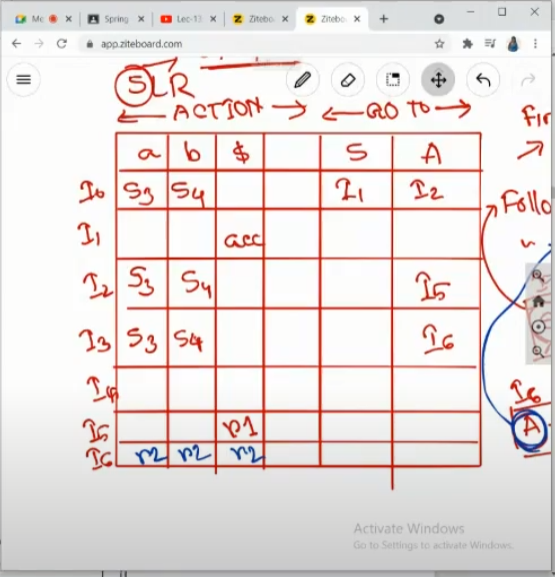 Me
Spring
Lec-13
Zitebo
Zitebo
app.ziteboard.com
SLR
ACTION GO TO
a b $ S A
I0 S3 S4 I1 I2
I1 acc
I2 S3 S4 I5
I3 S3 S4 I6
I4
I5 r1
I6 r2 r2 r2
Fir
Follo
I6
A
Activate Windows
Go to Settings to activate Windows.